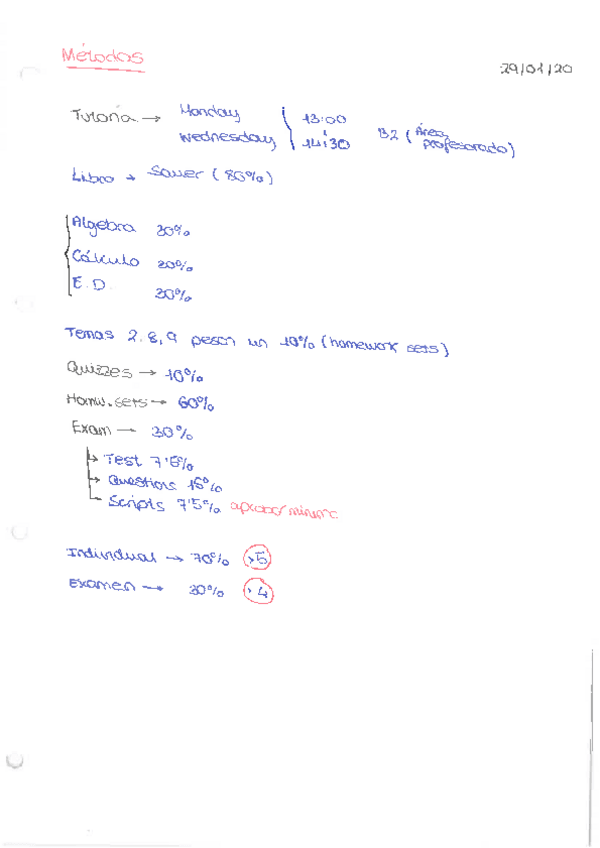 Métodos
29/01/20
Tutoría → Monday 13:00
Wednesday 14:30 B2 (Área profesorado)
Libro → Sauer (80%)
Algebra 30%
Cálculo 20%
E.D. 30%
Temas 2, 8, 9 pesan un 10% (homework sets)
Quizzes → 10%
Homw. sets → 60%
Exam → 30%
→ Test 7'5%
→ Questions 15%
Scripts 7'5%
Individual → 70% >5
Examen → 30% >4